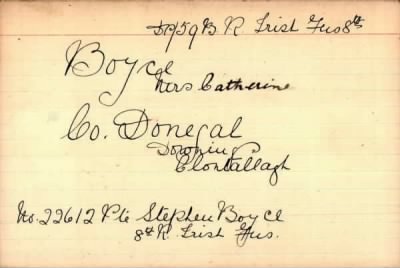 59 B R. Irish Fus 8th
Boyce
Mrs Catherine
Co. Donegal
Downing
Clontallagh
No. 22612 Pte Stephen Boyce
8th R. Irish Fus.